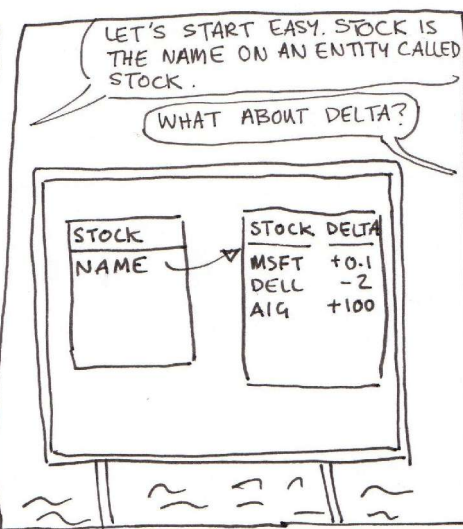 LET'S START EASY. STOCK IS
THE NAME ON AN ENTITY CALLED
STOCK.
WHAT ABOUT DELTA?
STOCK
NAME
STOCK DELTA
MSFT +0.1
DELL -2
AIG +100